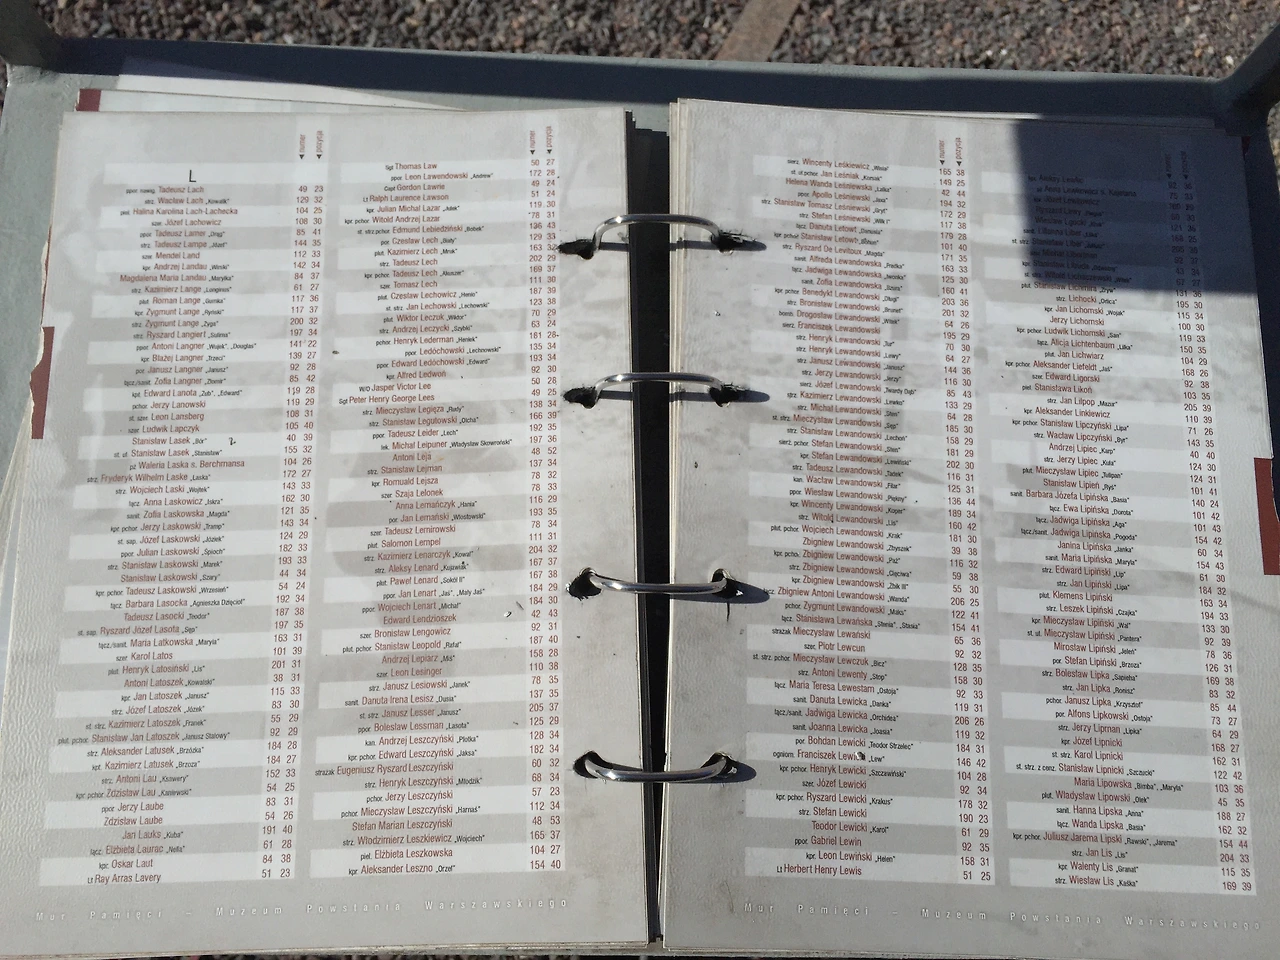 numer
pozycja
L
ppor. nawig. Tadeusz Lach 49 23
strz. Wacław Lach „Kowalik” 129 32
plut. Halina Karolina Lach-Lachecka 104 25
szer. Józef Lachowicz 108 30
ppor. Tadeusz Lamer „Drąg” 85 41
strz. Tadeusz Lampa 144 35
szer. Mendel Land 112 33
kpr. Andrzej Landau „Wirski” 142 34
Magdalena Maria Landau „Marylka” 84 37
strz. Kazimierz Lange „Longinus” 61 27
plut. Roman Lange „Gomka” 117 36
kpr. Zygmunt Lange „Ryński” 117 37
strz. Zygmunt Lange „Zyga” 200 32
strz. Ryszard Langiert „Sulima” 197 34
ppor. Antoni Langner „Wujek”, „Douglas” 141 22
kpr. Błażej Langner „Trzeci” 139 27
por. Janusz Langner „Janusz” 92 28
łącz./sanit. Zofia Langner „Zbonia” 85 42
kpr. Edward Lanota „Zub”, „Edward” 119 28
pchor. Jerzy Lanowski 119 29
st. szer. Leon Lansberg 108 31
szer. Ludwik Lapczyk 105 40
Stanisław Lasek „Bór” 40 39
st. uł. Stanisław Lasek „Stanisław” 155 32
pż Waleria Laska s. Berchmansa 104 26
strz. Fryderyk Wilhelm Laske „Filar” 172 27
strz. Wojciech Laski „Wojtek” 143 33
łącz. Anna Laskowicz „Iskra” 162 30
sanit. Zofia Laskowska „Magda” 121 35
kpr. pchor. Jerzy Laskowski „Tramp” 143 34
st. sap. Józef Laskowski „Józiek” 124 29
ppor. Julian Laskowski „Śpioch” 182 33
strz. Stanisław Laskowski „Marek” 193 33
Stanisław Laskowski „Szary” 44 34
kpr. pchor. Tadeusz Laskowski „Wrzesień” 54 24
łącz. Barbara Lasocka „Agnieszka Dzięcioł” 192 34
Tadeusz Lasocki „Teodor” 187 38
st. sap. Ryszard Józef Lasota „Sęp” 197 35
łącz./sanit. Maria Latkowska „Maryla” 163 31
szer. Karol Latos 101 39
plut. Henryk Latosiński „Lis” 201 31
Antoni Latoszek „Kowalski” 38 31
kpr. Jan Latoszek „Janusz” 115 33
strz. Józef Latoszek „Józek” 83 30
st. strz. Kazimierz Latoszek „Franek” 55 29
plut. pchor. Stanisław Jan Latoszek „Janusz Stalowy” 92 29
strz. Aleksander Latusek „Brzózka” 184 28
kpr. Kazimierz Latusek „Brzoza” 184 27
strz. Antoni Lau „Ksawery” 152 33
kpr. pchor. Zdzisław Lau „Kaniewski” 54 25
ppor. Jerzy Laube 83 31
Zdzisław Laube 54 26
Jan Lauks „Kuba” 191 40
łącz. Elżbieta Laurac „Nella” 61 28
kpr. Oskar Laut 84 38
Lt Ray Arras Lavery 51 23
numer
pozycja
Sgt Thomas Law 50 27
ppor. Leon Lawendowski „Andrew” 172 28
Capt Gordon Lawrie 49 24
Lt Ralph Laurence Lawson 51 24
kpr. Julian Michał Lazar „Adek” 119 30
kpr. pchor. Witold Andrzej Lazar 78 31
st. strz.pchor. Edmund Lebiedziński „Botłek” 136 43
por. Czesław Lech „Biały” 129 33
plut. Kazimierz Lech „Mrok” 163 32
strz. Tadeusz Lech 202 29
kpr. pchor. Tadeusz Lech „Akuszer” 169 37
szer. Tomasz Lech 111 30
plut. Czesław Lechowicz „Henin” 187 39
st. strz. Jan Lechowski „Lechowski” 123 38
plut. Wiktor Leczuk „Wiktor” 70 29
strz. Andrzej Leczycki „Szybki” 63 24
pchor. Henryk Lederman „Heniek” 181 28
ppor. Ledóchowski „Lechnowski” 135 34
ppor. Edward Ledóchowski „Edward” 193 34
kpr. Alfred Ledwoń 92 30
W/O Jasper Victor Lee 50 28
Sgt Peter Henry George Lees 49 25
strz. Mieczysław Legięza „Rudy” 138 34
strz. Stanisław Legutowski „Olcha” 166 39
ppor. Tadeusz Leider „Lech” 192 35
lek. Michał Leipuner „Władysław Skowroński” 197 36
Antoni Leja 48 52
strz. Stanisław Lejman 137 34
kpr. Romuald Lejsza 78 32
szer. Szaja Lelonek 78 33
Anna Lemańczyk „Hania” 116 29
por. Jan Lemański „Wiostowski” 193 35
szer. Tadeusz Lemirowski 78 34
plut. Salomon Lempel 111 31
strz. Kazimierz Lenarczyk „Kowal” 204 32
strz. Aleksy Lenard „Kujawiak” 167 37
plut. Paweł Lenard „Sokół II” 167 38
ppor. Jan Lenart „Jaś”, „Mały Jaś” 184 29
ppor. Wojciech Lenart „Michał” 184 30
Edward Lendzioszek 42 43
szer. Bronisław Lengowicz 92 31
plut. pchor. Stanisław Leopold „Rafał” 187 40
Andrzej Lepiarz „Miś” 158 28
szer. Leon Lesinger 110 38
strz. Janusz Lesiowski „Janek” 78 35
sanit. Danuta Irena Lesisz „Dusia” 137 35
st. strz. Janusz Lesser „Janusz” 205 37
ppor. Bolesław Lessman „Lasota” 125 29
kan. Andrzej Leszczyński „Plotka” 128 34
kpr. pchor. Edward Leszczyński „Jaksa” 182 34
strażak Eugeniusz Ryszard Leszczyński 60 32
strz. Henryk Leszczyński „Młodzik” 68 34
pchor. Jerzy Leszczyński 57 23
pchor. Mieczysław Leszczyński „Harnaś” 112 34
Stefan Marian Leszczyński 48 53
strz. Włodzimierz Leszkiewicz „Wojciech” 165 37
piel. Elżbieta Leszkowska 104 27
kpr. Aleksander Leszno „Orzeł” 154 40
Mur Pamięci – Muzeum Powstania Warszawskiego
numer
pozycja
sierż. Wincenty Leśkiewicz „Wisia” 165 38
st. uł.pchor. Jan Leśniak „Konrad” 149 25
Helena Wanda Leśniewska „Lalka” 42 44
ppor. Apollo Leśniewski „Jaxa” 194 32
strz. Stanisław Tomasz Leśniewski „Gryf” 172 29
strz. Stefan Leśniewski 117 38
łącz. Danuta Letowt 179 28
kpr. pchor. Stanisław Letowt 101 40
strz. Ryszard De Levitoux „Magda” 171 35
sanit. Alfreda Lewandowska 163 33
łącz. Jadwiga Lewandowska „Iwonka” 125 30
sanit. Zofia Lewandowska „Dziria” 160 41
kpr. pchor. Benedykt Lewandowski „Długi” 203 36
strz. Bronisław Lewandowski „Brunet” 201 32
Drogosław Lewandowski 64 26
sierż. Franciszek Lewandowski 193 35
strz. Henryk Lewandowski 70 30
strz. Henryk Lewandowski „Lewy” 64 27
strz. Janusz Lewandowski 144 36
strz. Jerzy Lewandowski „Jerzy” 116 30
szer. Józef Lewandowski „Twardy Dąb” 85 43
strz. Kazimierz Lewandowski 133 29
strz. Michał Lewandowski „Sten” 64 28
st. strz. Mieczysław Lewandowski „Sęp” 185 30
strz. Stanisław Lewandowski „Lechoń” 158 29
sierż. pchor. Stefan Lewandowski „Sten” 181 29
kpr. Stefan Lewandowski „Lewiński” 202 30
strz. Tadeusz Lewandowski „Tadek” 116 31
kan. Wacław Lewandowski 125 31
ppor. Wiesław Lewandowski „Piękny” 136 44
kpr. Wincenty Lewandowski „Koper” 189 34
strz. Witold Lewandowski „Lis” 160 42
plut. pchor. Wojciech Lewandowski „Krak” 181 30
Zbigniew Lewandowski „Zbyszek” 39 38
kpr. pchor. Zbigniew Lewandowski 116 32
kpr. Zbigniew Lewandowski „Cięciwa” 59 38
kpr. Zbigniew Lewandowski „Żbik III” 55 30
łącz. Zbigniew Antoni Lewandowski „Wanda” 206 25
pchor. Zygmunt Lewandowski „Maks” 122 41
łącz. Stanisława Lewańska „Stenia”, „Stasia” 154 41
strażak Mieczysław Lewański 65 36
szer. Piotr Lewcun 92 32
st. strz. pchor. Mieczysław Lewczuk „Bicz” 128 35
strz. Antoni Lewenty „Stop” 158 30
łącz. Maria Teresa Lewestam „Ostoja” 92 33
sanit. Danuta Lewicka „Danka” 119 31
łącz./sanit. Jadwiga Lewicka „Orchidea” 206 26
sanit. Joanna Lewicka „Joasia” 119 32
por. Bohdan Lewicki „Teodor Strzelec” 184 31
ogniom. Franciszek Lewicki „Lew” 146 42
kpr. pchor. Henryk Lewicki „Szczawiński” 104 28
szer. Józef Lewicki 92 34
kpr. pchor. Ryszard Lewicki „Krakus” 178 32
strz. Stefan Lewicki 190 23
Teodor Lewicki „Karol” 61 29
ppor. Gabriel Lewin 92 35
kpr. Leon Lewiński „Helen” 158 31
Lt Herbert Henry Lewis 51 25
Stanisław Lichniak „Żyw” 131 36
strz. Lichocki „Orlica” 195 30
kpr. Jan Lichomski „Wojak” 115 34
Jerzy Lichomski 100 30
kpr. pchor. Ludwik Lichomski „San” 119 33
łącz. Alicja Lichtenbaum „Lilka” 150 35
plut. Jan Lichwiarz 104 29
kpr. pchor. Aleksander Liefeldt „Jaś” 168 26
szer. Edward Ligorski 92 38
plut. Stanisława Likoń 103 35
strz. Jan Lilpop „Mazur” 205 39
kpr. Aleksander Linkiewicz 110 39
kpr. pchor. Stanisław Lipczyński „Lipa” 71 26
strz. Wacław Lipczyński „Byk” 143 35
Andrzej Lipiec „Karp” 40 40
strz. Jerzy Lipiec „Kula” 124 30
plut. Mieczysław Lipiec „Tulipan” 124 31
Stanisław Lipień „Ryś” 101 41
sanit. Barbara Józefa Lipińska „Basia” 140 24
łącz. Ewa Lipińska „Dorota” 101 42
łącz. Jadwiga Lipińska „Aga” 101 43
łącz./sanit. Jadwiga Lipińska „Pogoda” 154 42
Janina Lipińska „Janka” 60 34
sanit. Maria Lipińska „Maryla” 154 43
strz. Edward Lipiński „Lip” 61 30
strz. Jan Lipiński „Lipa” 184 32
plut. Klemens Lipiński 163 34
strz. Leszek Lipiński „Czajka” 194 33
kpr. Mieczysław Lipiński „Wal” 133 30
st. uł. Mieczysław Lipiński „Pantera” 92 39
Mirosław Lipiński „Jeleń” 78 36
por. Stefan Lipiński „Brzoza” 126 31
strz. Bolesław Lipka „Sapieha” 169 38
strz. Jan Lipka „Ronisz” 83 32
pchor. Janusz Lipka „Krzysztof” 85 44
por. Alfons Lipkowski „Ostoja” 73 27
strz. Jerzy Lipman „Lipka” 64 29
kpr. Józef Lipnicki 168 27
st. strz. Karol Lipnicki 162 31
st. strz. z cenz. Stanisław Lipnicki „Szczucki” 122 42
Maria Lipowska „Bimba”, „Maryla” 103 36
plut. Władysław Lipowski „Olek” 45 35
sanit. Hanna Lipska „Anna” 188 27
łącz. Wanda Lipska „Basia” 162 32
kpr. pchor. Juliusz Jarema Lipski „Rawski”, „Jarema” 154 44
strz. Jan Lis „Lis” 204 33
kpr. Walenty Lis „Granat” 115 35
strz. Wiesław Lis „Kaśka” 169 39
Mur Pamięci – Muzeum Powstania Warszawskiego